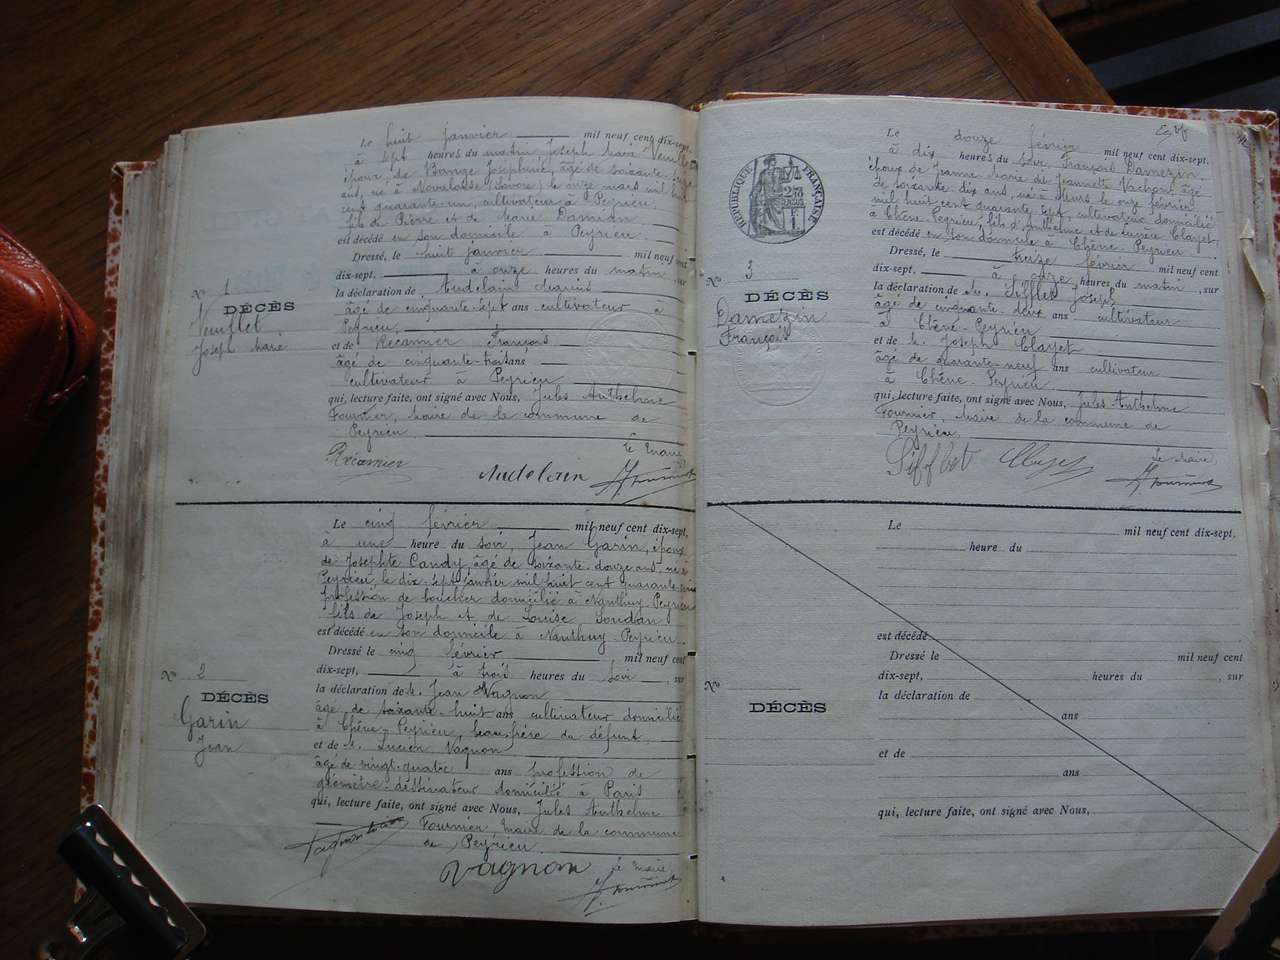 Le huit janvier mil neuf cent dix-sept,
à sept heures du matin Joseph Marie Veuillet
époux de Bange Joséphine, âgé de soixante
ans, né à Novalaise (Savoie) le onze mars mil huit
cent quarante-un, cultivateur à Peyrieu,
fils de Pierre et de Marie Damian
est décédé en son domicile à Peyrieu.
Dressé, le huit janvier mil neuf cent
dix-sept, à onze heures du matin, sur
la déclaration de Audelain Marius
âgé de cinquante-sept ans cultivateur à
Peyrieu,
et de Récamier François
âgé de cinquante-trois ans
cultivateur à Peyrieu
qui, lecture faite, ont signé avec Nous, Jules Anthelme
Fournier, Maire de la commune de
Peyrieu.
Le Maire
Récamier Audelain JFournier
No 1
DÉCÈS
Veuillet
Joseph Marie
Le cinq février mil neuf cent dix-sept,
à une heure du soir, Jean Garin, époux
de Josephte Candy, âgé de soixante-douze ans, né à
Peyrieu, le dix-sept janvier mil huit cent quarante
profession de boucher domicilié à Nanthuy Peyrieu
fils de Joseph et de Louise Loudan
est décédé en son domicile à Nanthuy-Peyrieu.
Dressé le cinq février mil neuf cent
dix-sept, à trois heures du soir, sur
la déclaration de M. Jean Vagnon
âgé de soixante-huit ans cultivateur domicilié
à Chêne-Peyrieu, beau-frère du défunt
et de M. Lucien Vagnon
âgé de vingt-quatre ans profession de
géomètre-dessinateur domicilié à Paris
qui, lecture faite, ont signé avec Nous, Jules Anthelme
Fournier, Maire de la commune
de Peyrieu.
Vagnon Le Maire
JFournier
No 2
DÉCÈS
Garin
Jean
RÉPUBLIQUE FRANÇAISE
Le douze février mil neuf cent dix-sept,
à dix heures du soir, François Damezin
époux de Jeanne Marie dit Jeannette Vachon, âgé
de soixante-dix ans, né à Murs le onze février
mil huit cent quarante-sept, cultivateur domicilié
à Chêne-Peyrieu, fils d'Anthelme et de Clayet,
est décédé en son domicile à Chêne-Peyrieu.
Dressé, le treize février mil neuf cent
dix-sept, à onze heures du matin, sur
la déclaration de M. Sifflet Joseph
âgé de cinquante-deux ans cultivateur
à Chêne-Peyrieu
et de M. Joseph Clayet
âgé de quarante-neuf ans cultivateur
à Chêne-Peyrieu
qui, lecture faite, ont signé avec Nous, Jules Anthelme
Fournier, Maire de la commune de
Peyrieu.
Sifflet Clayet Le Maire
JFournier
No 3
DÉCÈS
Damezin
François
Le mil neuf cent dix-sept,
heure du
est décédé
Dressé le mil neuf cent
dix-sept, heures du , sur
la déclaration de
ans
et de
ans
qui, lecture faite, ont signé avec Nous,
No
DÉCÈS